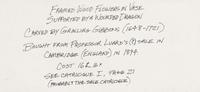 FRAMED WOOD FLOWERS IN VASE
SUPPORTED BY A WOUNDED DRAGON
CARVED BY GRINLING GIBBONS (1648-1721)
BOUGHT FROM PROFESSOR LUARD'S (?) SALE IN
CAMBRIDGE (ENGLAND) IN 1894.
COST
SEE CATALOGUE I, PAGE 21
(PROBABLY THE SALE CATALOGUE)